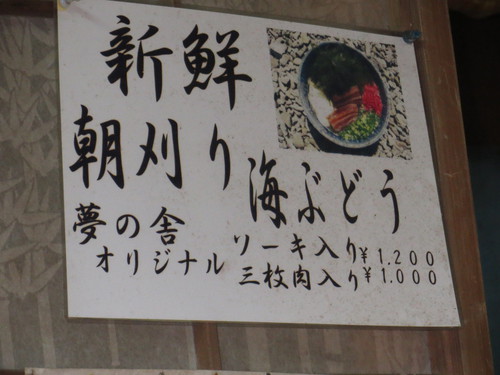 新鮮
朝刈り
海ぶどう
夢の舎
オリジナル
ソーキ入り ¥1.200
三枚肉入り ¥1.000